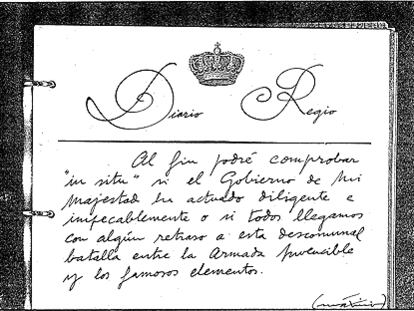 Diario Regio
Al fin podré comprobar
"in situ" si el Gobierno de Mi
majestad ha actuado diligente e
impecablemente o si todos llegamos
con algún retraso a esta descomunal
batalla entre la Armada Invencible
y los famosos elementos.
(máximo)